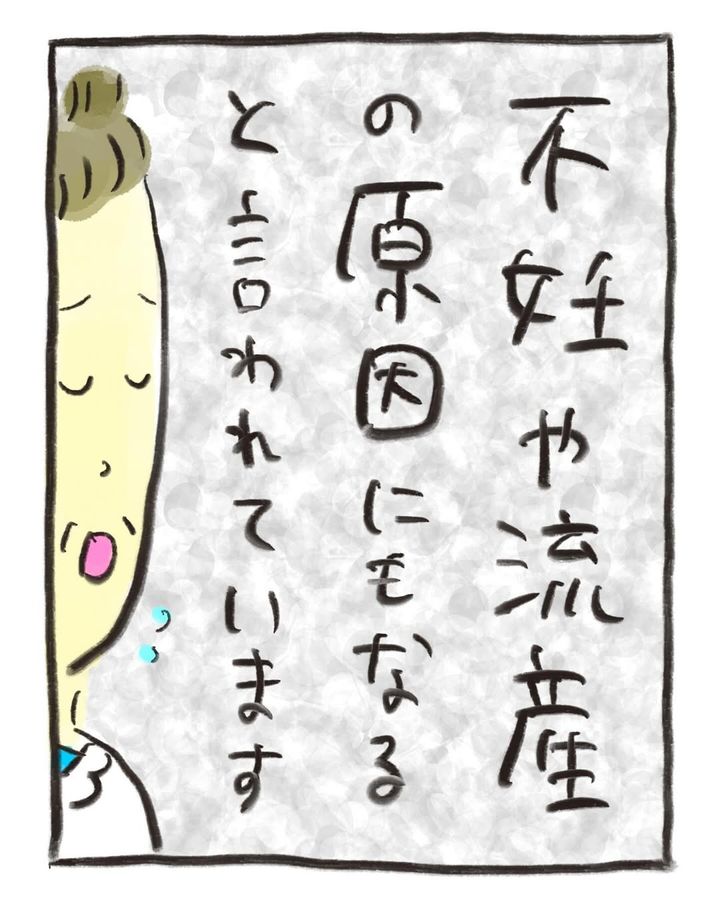 不妊や流産
の原因にもなる
と言われています